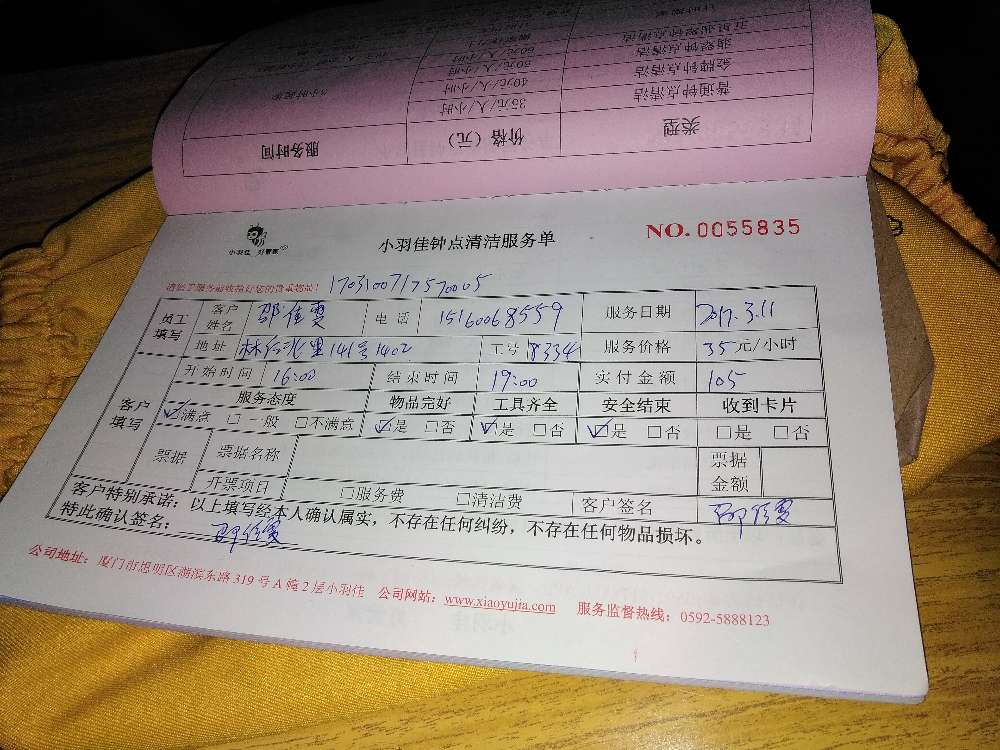 服务时间 价格（元） 类型
35元/人/小时 普通钟点清洁
40元/人/小时 金牌钟点清洁
小羽佳 好管家
小羽佳钟点清洁服务单
NO. 0055835
1703100717570005
员工填写 客户姓名 电话 15160068559 服务日期 2017.3.11
地址 141号1402 工号 8334 服务价格 35元/小时
客户填写 开始时间 16:00 结束时间 19:00 实付金额 105
服务态度 物品完好 工具齐全 安全结束 收到卡片
☑满点 □一般 □不满点 ☑是 □否 ☑是 □否 ☑是 □否 □是 □否
票据 票据名称 票据金额
开票项目 □服务费 □清洁费 客户签名
客户特别承诺：以上填写经本人确认属实，不存在任何纠纷，不存在任何物品损坏。
特此确认签名：
公司地址：厦门市思明区湖滨东路319号A幢2层小羽佳 公司网站：www.xiaoyujia.com 服务监督热线：0592-5888123